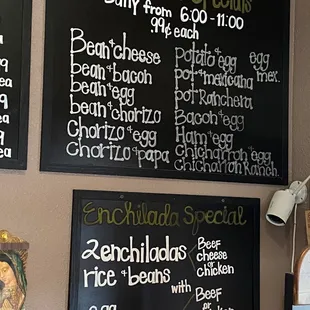 Daily from 6:00-11:00
.99¢ each
Bean & cheese
bean & bacon
bean & egg
bean & chorizo
Chorizo & egg
Chorizo & papa
Potato & egg
pot & mexicana
pot Ranchera
Bacon & egg
Ham & egg
Chicharron & egg
Chicharron Ranch.
egg
mex.
Enchilada Special
2 enchiladas
rice & beans
Beef
cheese
or
chicken
with
egg
Beef
or
chicken
ea
ea